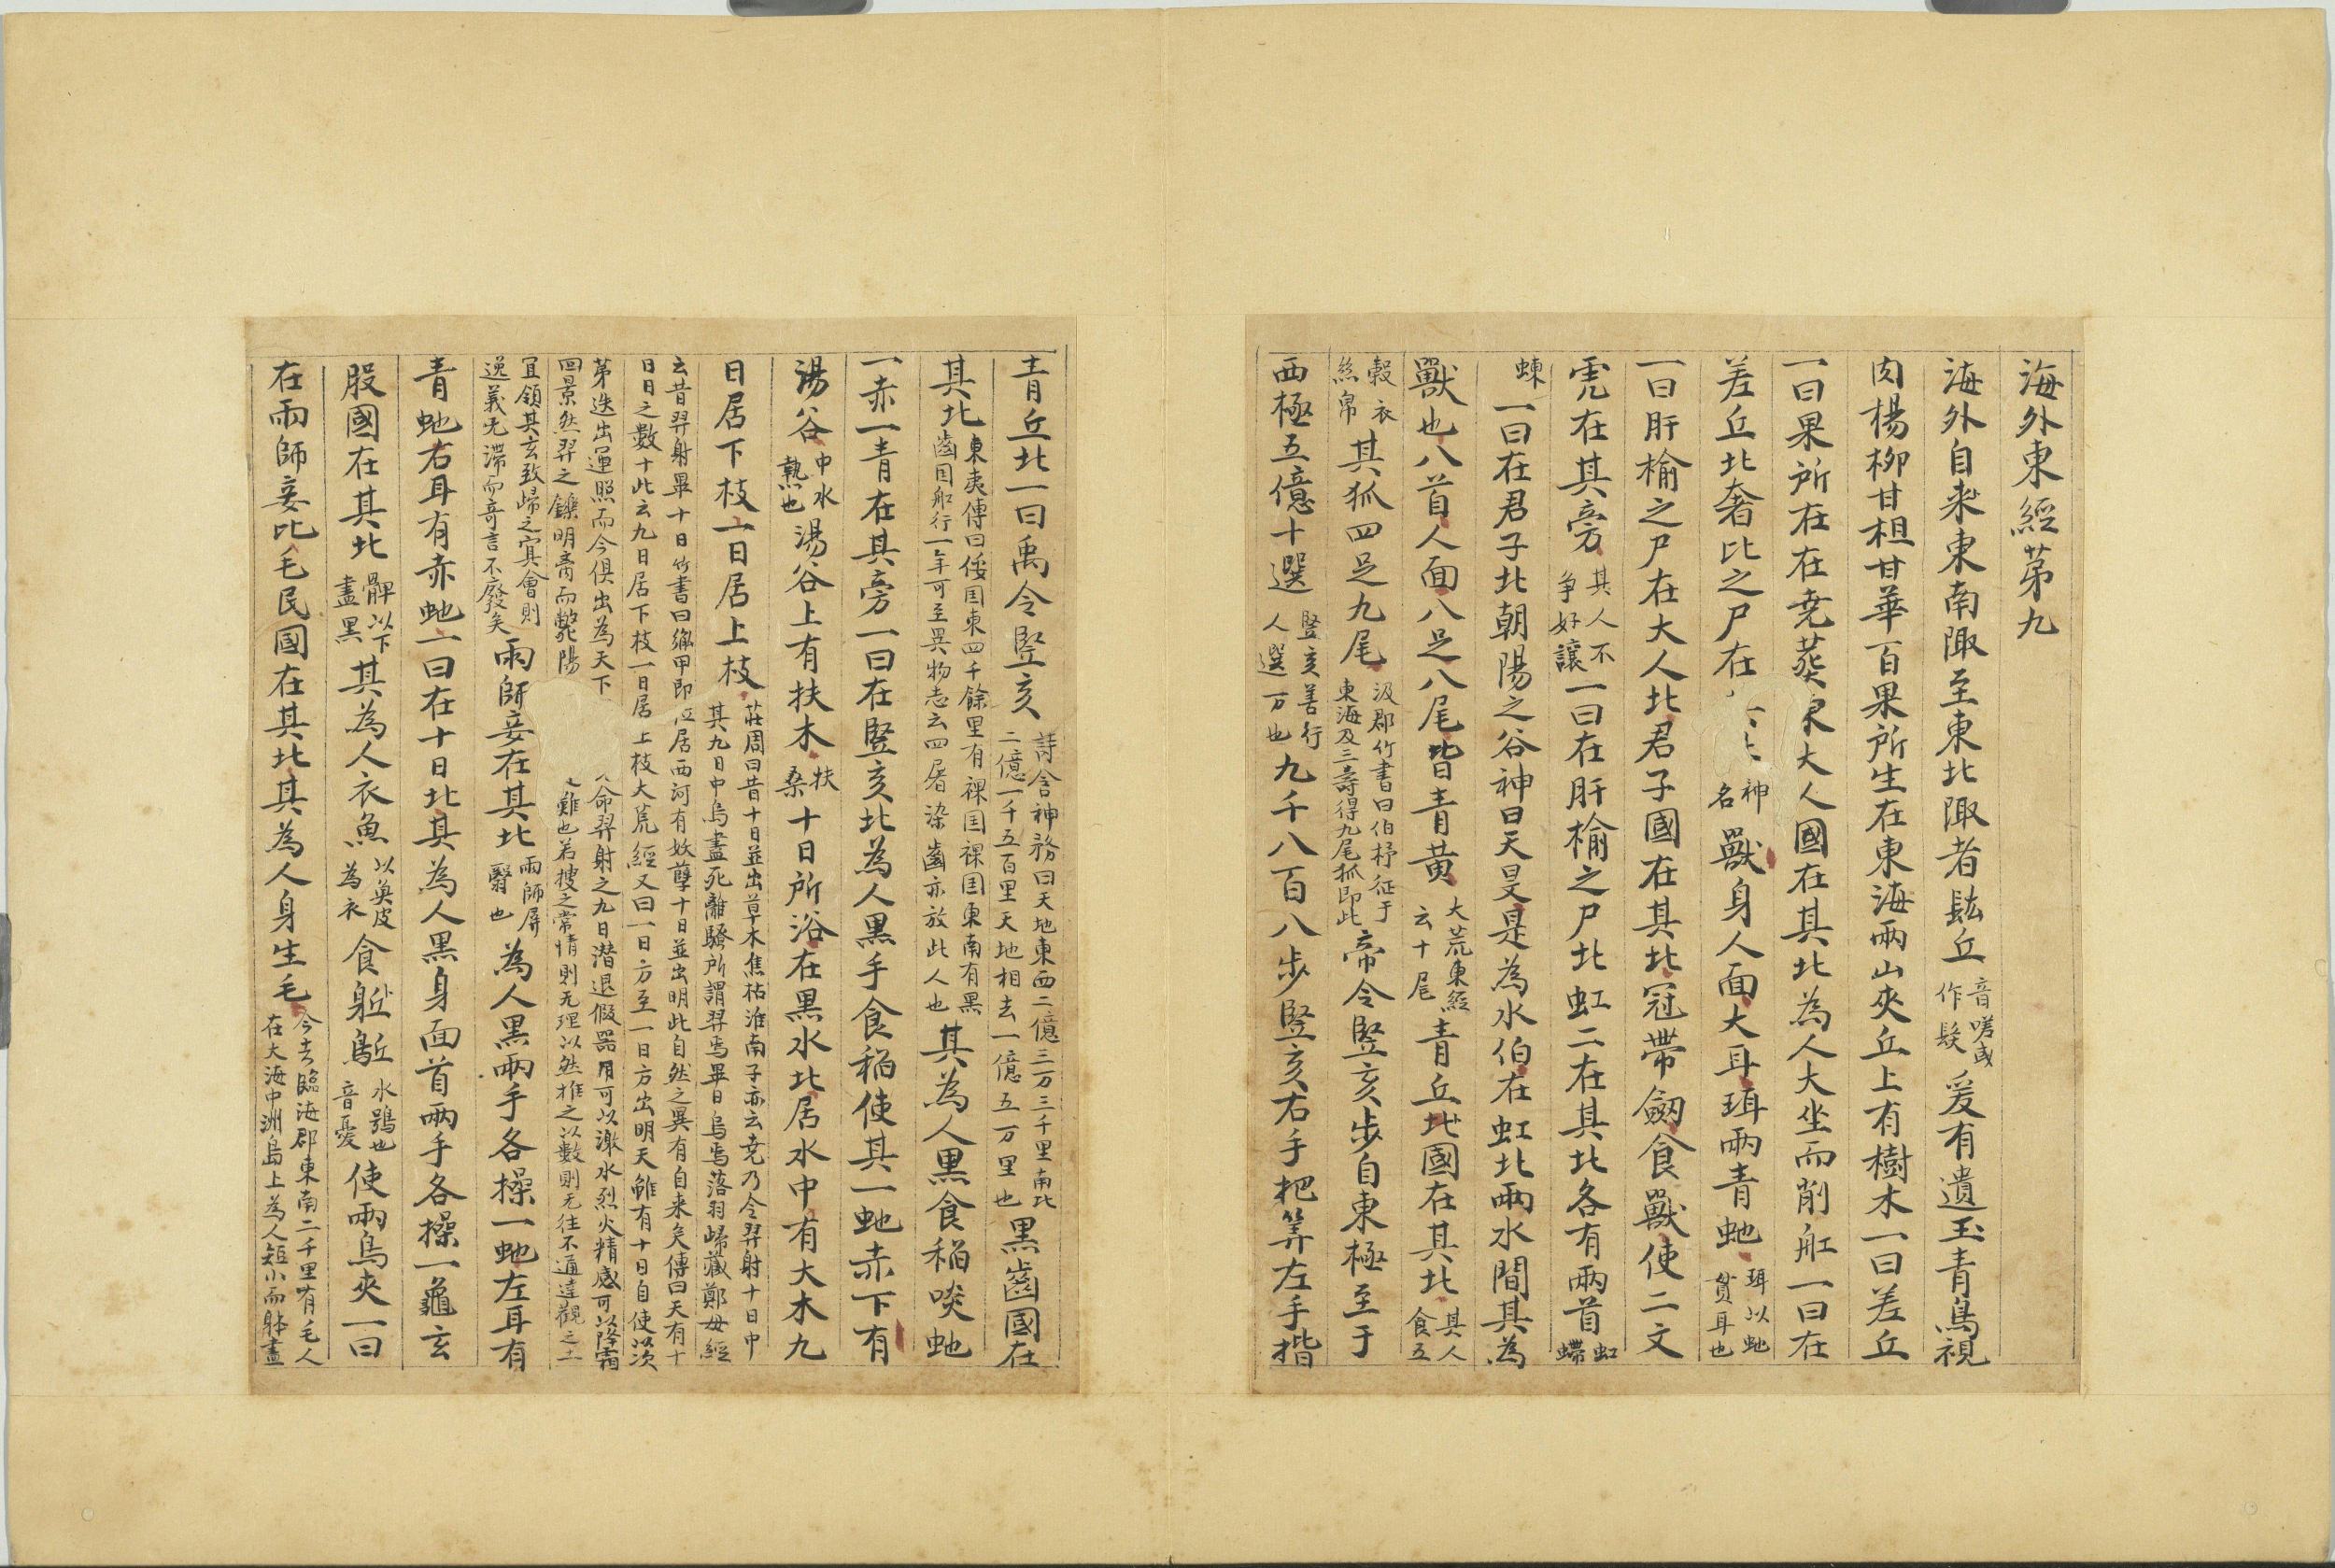 海外東經苐九
海外自東東南陬至東北陬者䰃丘音嗟或作髮爰有遺玉青鳥視
肉楊栁甘柤甘華百果所生在東海兩山夾丘上有樹木一曰差丘
一曰果所在在尭葬東大人國在其北為人大坐而削舡一曰在
差丘北奢比之尸在神名獸身人面大耳珥兩青虵珥以虵貫耳也
一曰肝榆之尸在大人北君子國在其北冠帶劒食獸使二文
虎在其旁其人不争好讓一曰在肝榆之尸北虹二在其北各有兩首虹螮
蝀一曰在君子北朝陽之谷神曰天吴是為水伯在虹北兩水間其為
獸也八首人面八足八尾皆青黄大荒東經云十尾青丘北國在其北其人食五
糓衣絲帛其狐四足九尾汲郡竹書曰伯杼征于東海及三壽得九尾狐即此帝令竪亥步自東極至于
西極五億十選竪亥善行人選万也九千八百八步竪亥右手把筭左手揩
青丘北一曰禹令竪亥詩含神務曰天地東西二億三万三千里南北二億一千五百里天地相去一億五万里也黒齒國在
其北東夷傳曰倭国東四千餘里有裸国裸国東南有黑齒国舡行一年可至異物志云四屠染齒亦放此人也其為人黒食稻啖虵
一赤一青在其旁一曰在竪亥北為人黒手食稻使其一虵赤下有
湯谷中水熱也湯谷上有扶木扶桑十日所浴在黒水北居水中有大木九
日居下枝一日居上枝莊周曰昔十日並出草木焦枯淮南子亦云尭乃令羿射十日中其九日中烏盡死離騷所謂羿焉畢日烏焉落羽歸藏鄭母經
云昔羿射畢十日竹書曰胤甲即位居西河有妖孽十日並出明此自然之異有自来矣傳曰天有十日日之數十此云九日居下枝一日居上枝大荒經又曰一日方至一日方出明天雖有十日自使以次
苐迭出運照而今俱出為天下命羿射之九日潜退假器用可以激水烈火精感可以降霜回景然羿之鑠明离而斃陽難也若搜之常情則无理以然推之以數則无往不通達觀之士
宜領其玄致歸之冥會則逸義无滞而奇言不廢矣雨師妾在其北雨師屏翳也為人黒兩手各操一虵左耳有
青虵右耳有赤虵一曰在十日北其為人黒身面首兩手各操一龜玄
股國在其北髀以下盡黑其為人衣魚以𩵋皮為衣食䳼䳼水鴞也音憂使兩鳥夾一曰
在雨師妾比毛民國在其北其為人身生毛今去臨海郡東南二千里有毛人在大海中洲島上為人短小而躰盡